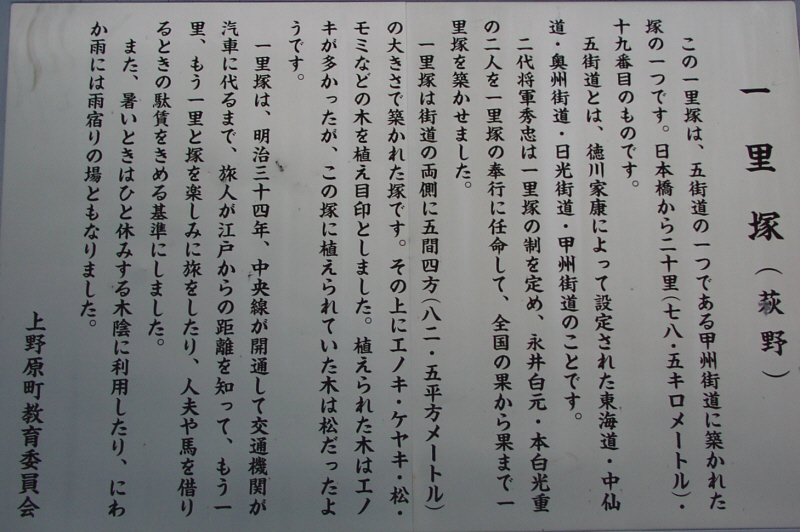 一里塚（萩野）
この一里塚は、五街道の一つである甲州街道に築かれた
塚の一つです。日本橋から二十里（七八・五キロメートル）・
十九番目のものです。
五街道とは、徳川家康によって設定された東海道・中仙
道・奥州街道・日光街道・甲州街道のことです。
二代将軍秀忠は一里塚の制を定め、永井白元・本白光重
の二人を一里塚の奉行に任命して、全国の果から果まで一
里塚を築かせました。
一里塚は街道の両側に五間四方（八二・五平方メートル）
の大きさで築かれた塚です。その上にエノキ・ケヤキ・松・
モミなどの木を植え目印としました。植えられた木はエノ
キが多かったが、この塚に植えられていた木は松だったよ
うです。
一里塚は、明治三十四年、中央線が開通して交通機関が
汽車に代るまで、旅人が江戸からの距離を知って、もう一
里、もう一里と塚を楽しみに旅をしたり、人夫や馬を借り
るときの駄賃をきめる基準にしました。
また、暑いときはひと休みする木陰に利用したり、にわ
か雨には雨宿りの場ともなりました。
上野原町教育委員会